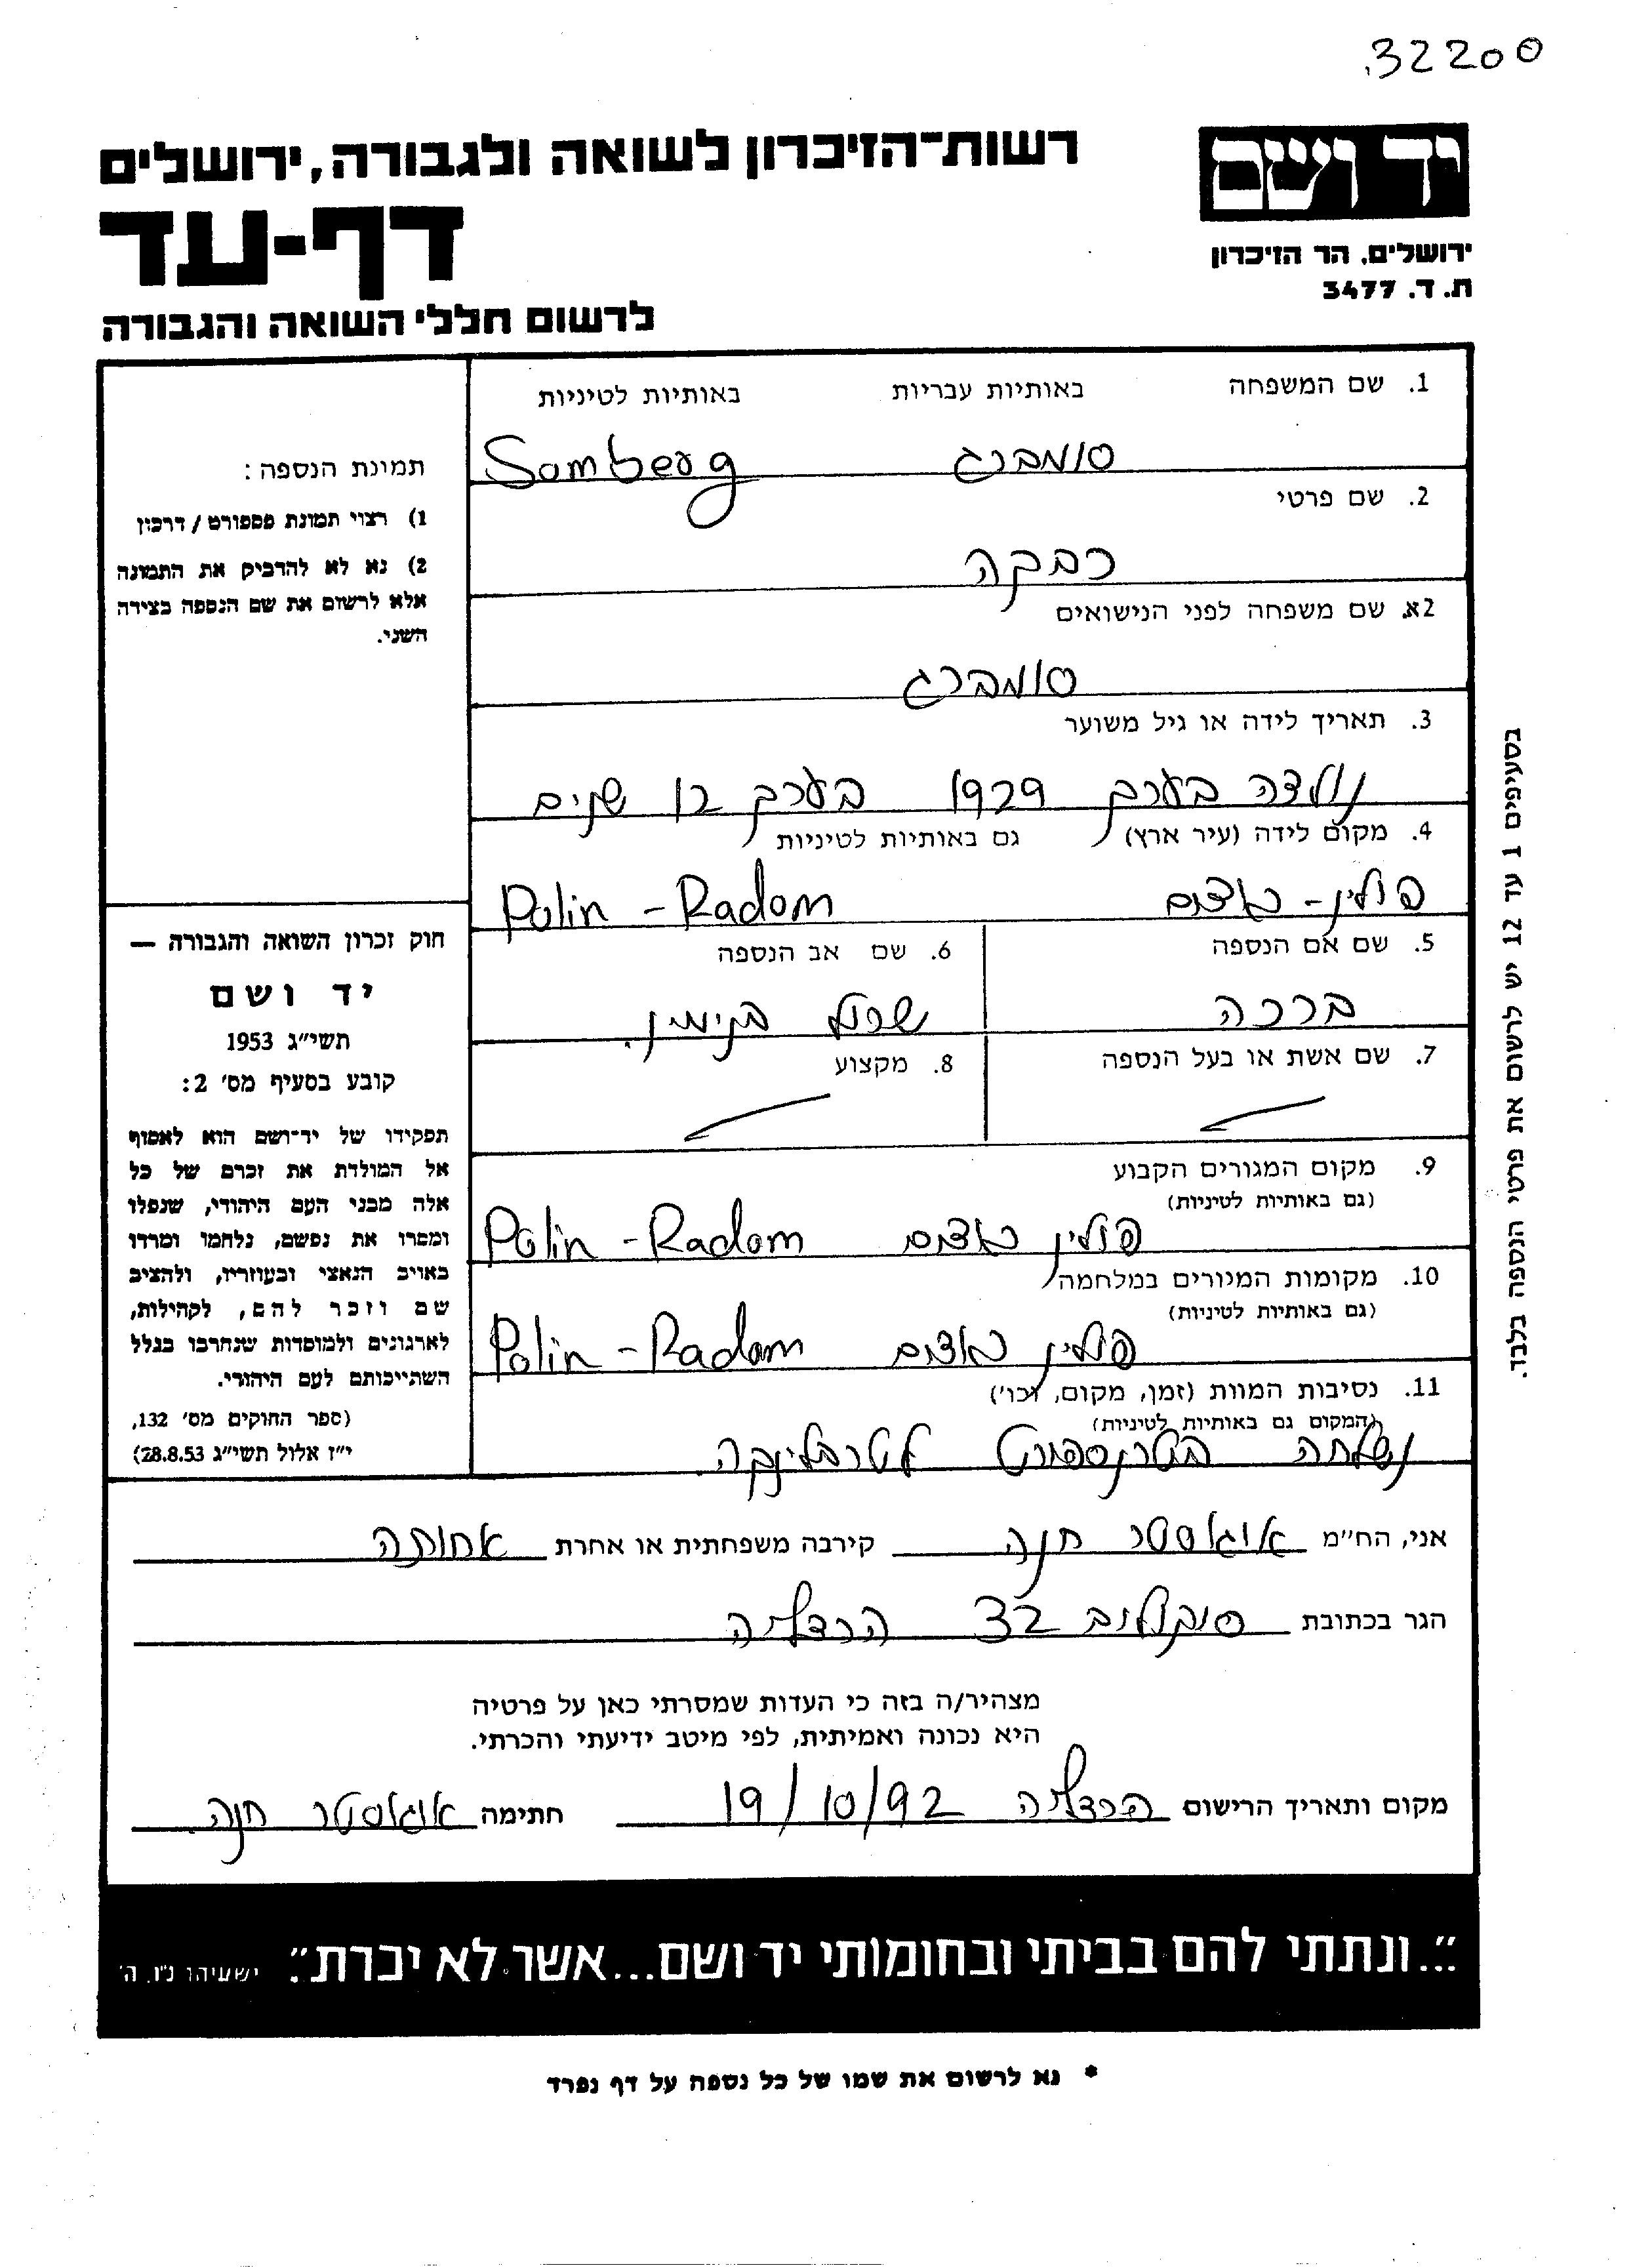 32200
יד ושם
ירושלים. הר הזיכרון
ת. ד. 3477
רשות־הזיכרון לשואה ולגבורה, ירושלים
דף-עד
לרשום חללי השואה והגבורה
1. שם המשפחה באותיות עבריות באותיות לטיניות
סומברג Somberg
2. שם פרטי
רבקה
2א. שם משפחה לפני הנישואים
סומברג
3. תאריך לידה או גיל משוער
נולדה בערך 1929 בערך 12 שנים
4. מקום לידה (עיר ארץ) גם באותיות לטיניות
פולין - ראדום Polin - Radom
5. שם אם הנספה 6. שם אב הנספה
ברכה שרול בנימין.
7. שם אשת או בעל הנספה 8. מקצוע
9. מקום המגורים הקבוע
(גם באותיות לטיניות)
פולין ראדום Polin - Radom
10. מקומות המגורים במלחמה
(גם באותיות לטיניות)
פולין ראדום Polin - Radom
11. נסיבות המוות (זמן, מקום, וכו')
(המקום גם באותיות לטיניות)
נשלחה בטרנספורט לטרבלינקה.
תמונת הנספה:
1) רצוי תמונת פספורט / דרכון
2) נא לא להדביק את התמונה
אלא לרשום את שם הנספה בצידה
השני.
חוק זכרון השואה והגבורה —
יד ושם
תשי״ג 1953
קובע בסעיף מס׳ 2:
תפקידו של יד־ושם הוא לאסוף
אל המולדת את זכרם של כל
אלה מבני העם היהודי, שנפלו
ומסרו את נפשם, נלחמו ומרדו
באויב הנאצי ובעוזריו, ולהציב
שם וזכר להם, לקהילות,
לארגונים ולמוסדות שנחרבו בגלל
השתייכותם לעם היהודי.
(ספר החוקים מס׳ 132,
י״ז אלול תשי״ג 28.8.53)
בסעיפים 1 עד 12 יש לרשום את פרטי הנספה בלבד.
אני, הח״מ אוגוסטר חנה קירבה משפחתית או אחרת אחותה
הגר בכתובת סוקולוב 32 הרצליה
מצהיר/ה בזה כי העדות שמסרתי כאן על פרטיה
היא נכונה ואמיתית, לפי מיטב ידיעתי והכרתי.
מקום ותאריך הרישום הרצליה 19/10/92 חתימה אוגוסטר חנה
״...ונתתי להם בביתי ובחומותי יד ושם...אשר לא יכרת״. ישעיהו נ״ו, ה׳
* נא לרשום את שמו של כל נספה על דף נפרד